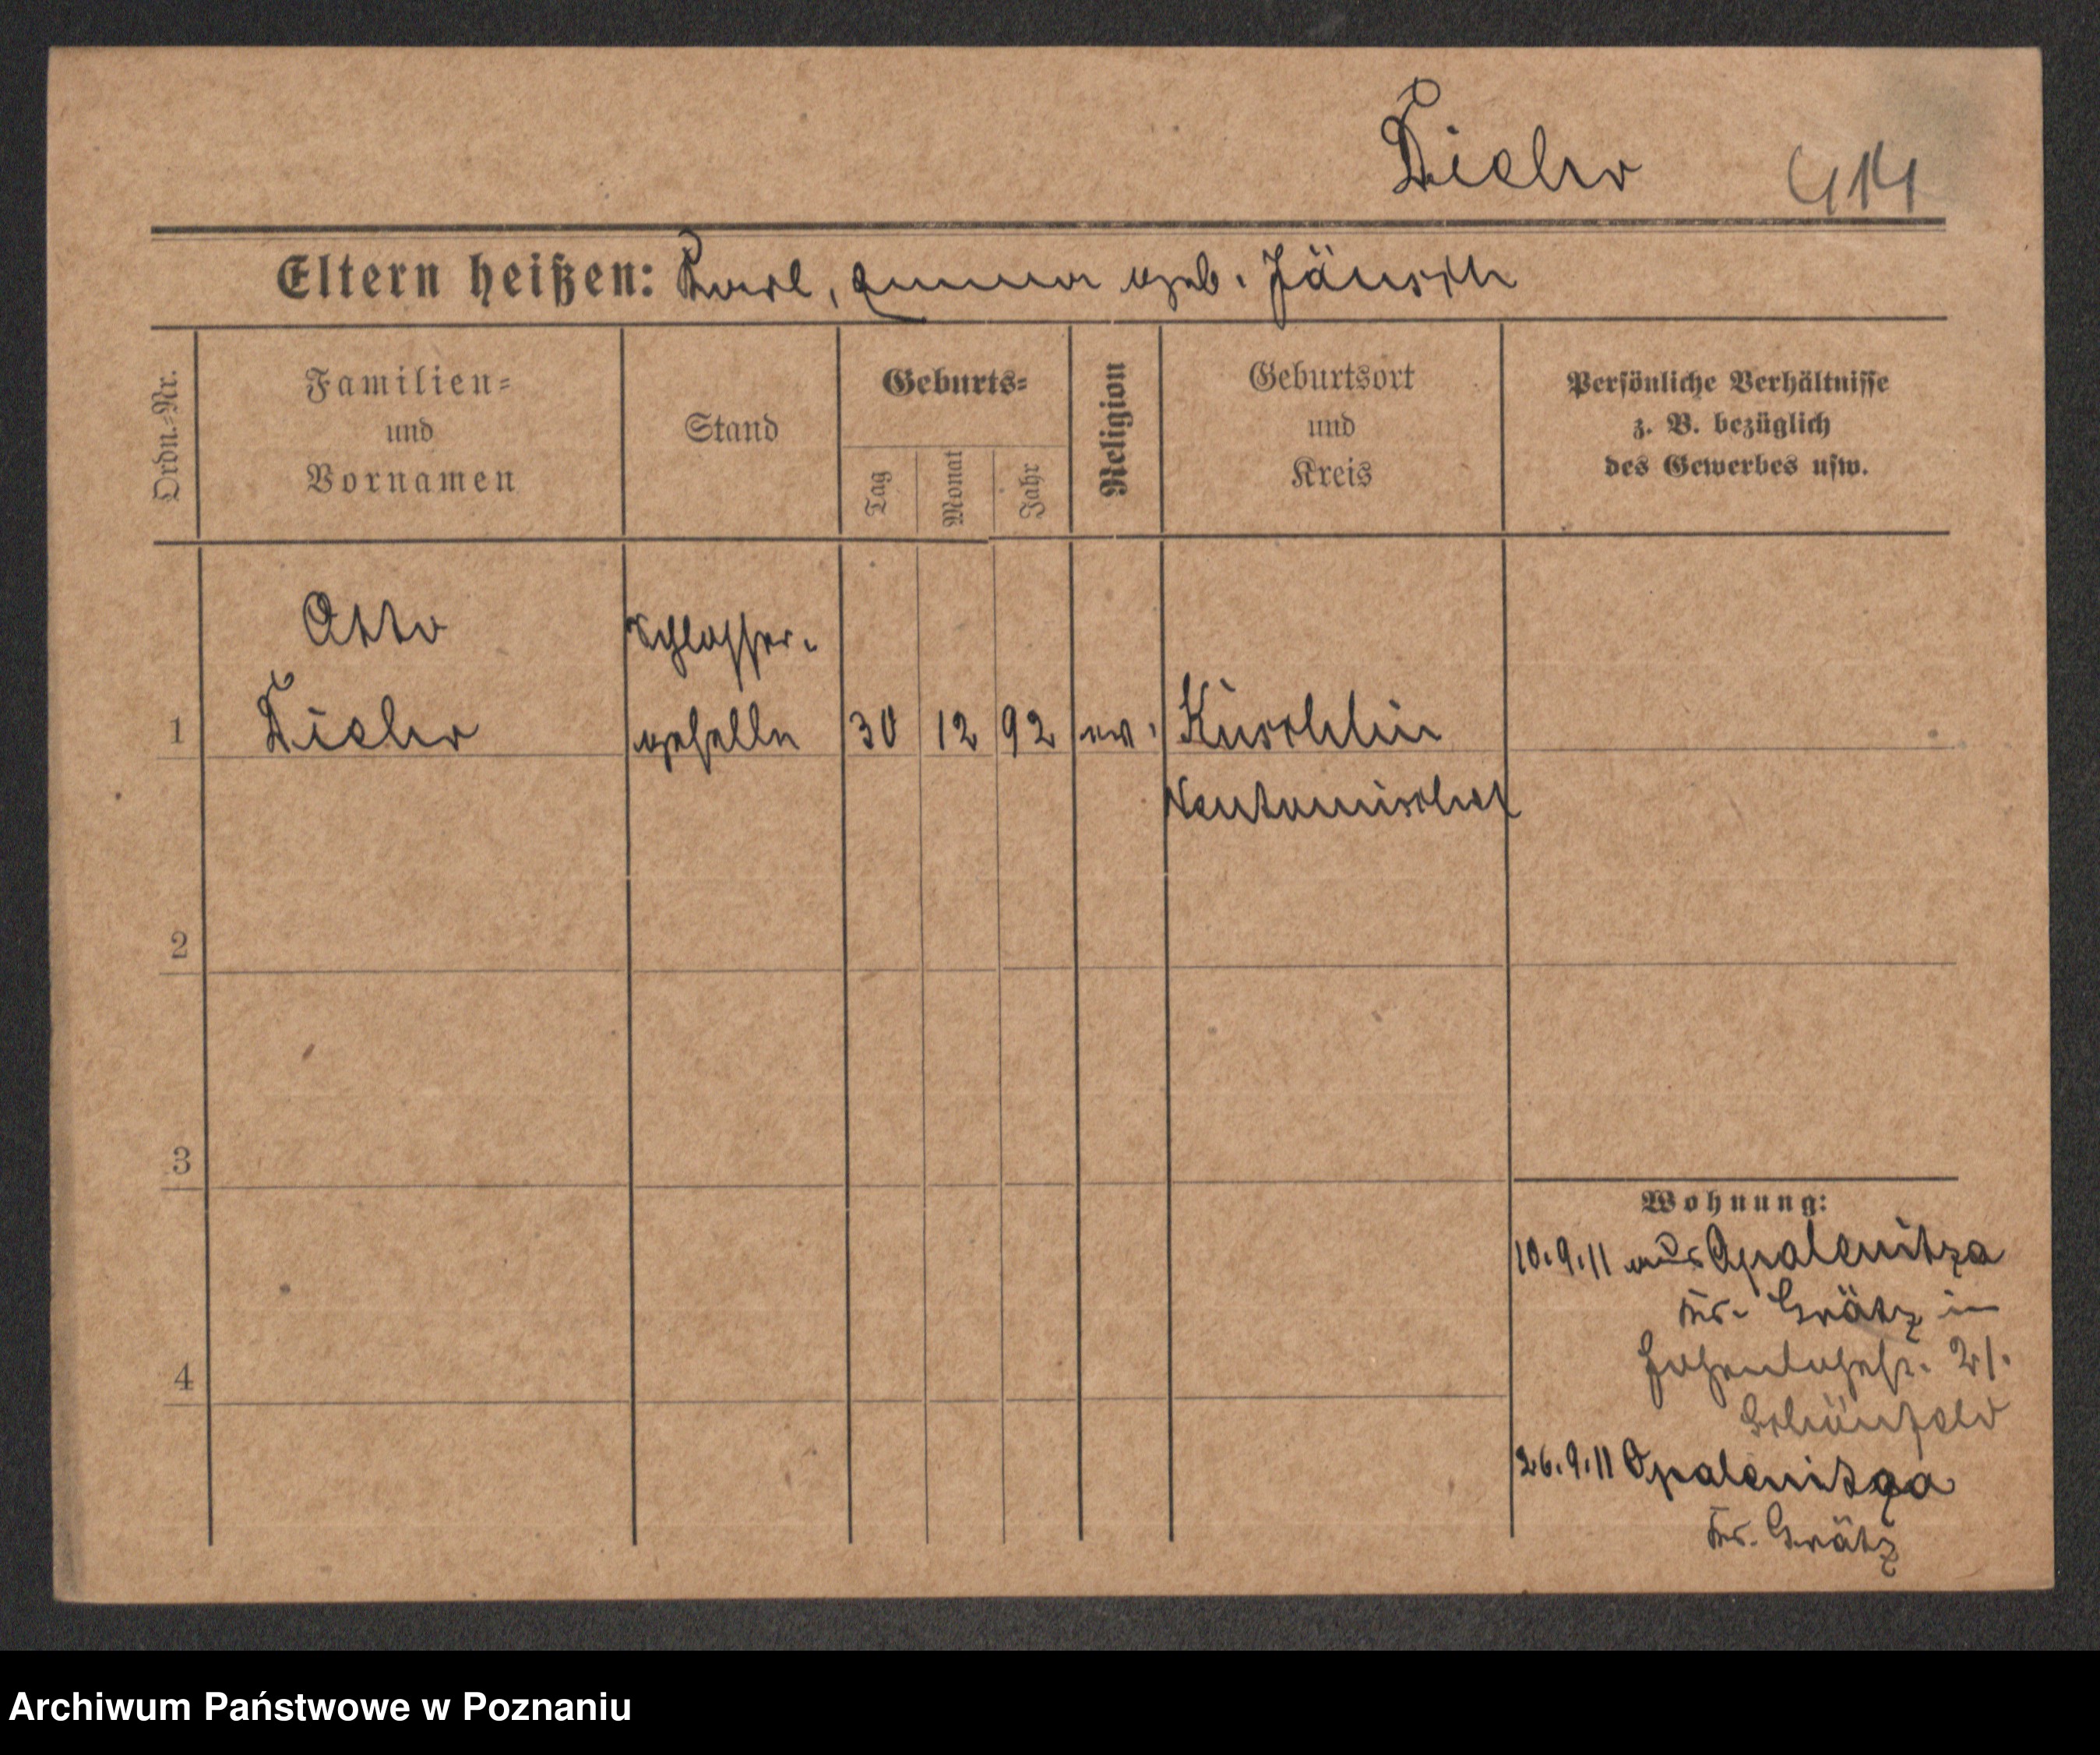 Diehr 414
Eltern heißen: Karl, Emma geb. Jänsch
Ordn.-Nr.
Familien-
und
Vornamen
Stand
Geburts-
Tag
Monat
Jahr
Religion
Geburtsort
und
Kreis
Persönliche Verhältnisse
z. B. bezüglich
des Gewerbes usw.
Otto Schlosser-
1 Diehr geselle 30 12 92 ev. Kuschlin
Neutomischel
2
3
4
Wohnung:
10.9.11 aus Opalenitza
Kr. Grätz in
21.
Schönfeld
26.9.11 Opalenitza
Kr. Grätz
Archiwum Państwowe w Poznaniu